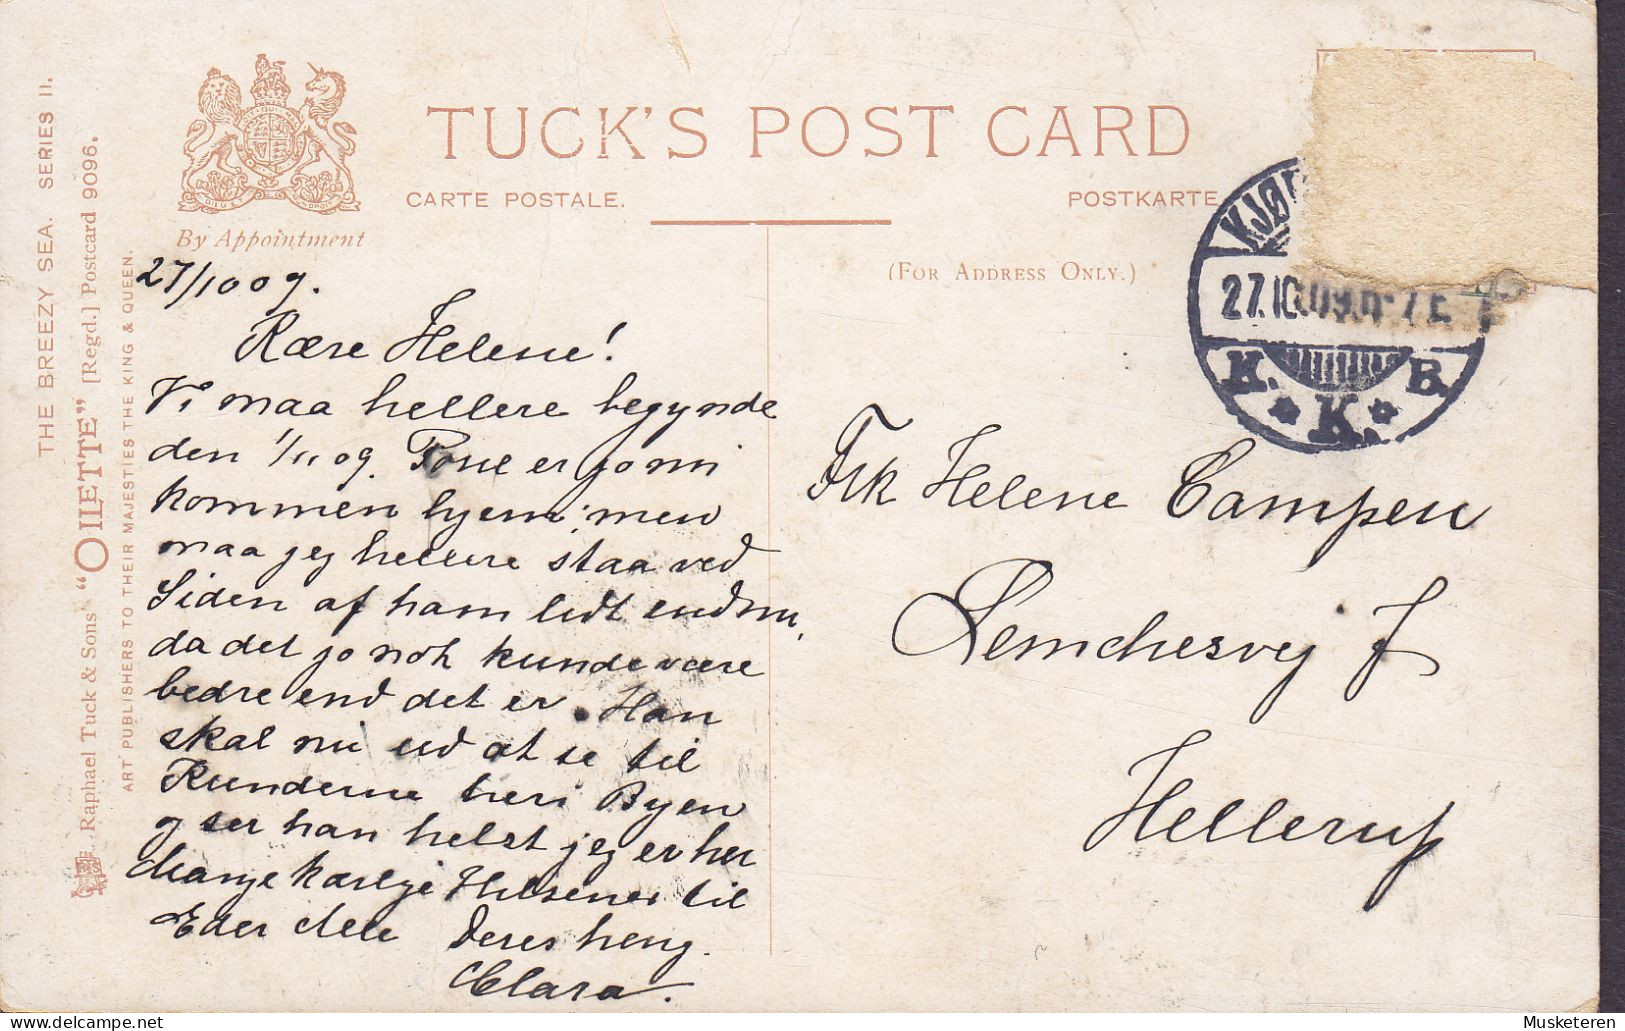 THE BREEZY SEA. SERIES II.
Raphael Tuck & Sons "OILETTE" [Regd.] Postcard 9096.
ART PUBLISHERS TO THEIR MAJESTIES THE KING & QUEEN.
By Appointment
TUCK'S POST CARD
CARTE POSTALE.
POSTKARTE
(FOR ADDRESS ONLY.)
KJØ
27.10.09.
K. K. B.
27/10 09.
Kære Helene!
Vi maa hellere begynde
den 1/11 09. Poul er jo nu
kommen hjem, men
maa jeg hellere staa ved
Siden af ham lidt endnu,
da det jo nok kunde være
bedre end det er. Han
skal nu ud at se til
Kunderne her i Byen
og ser han helst jeg er her
Mange kærlige Hilsener til
Eder alle Deres heng.
Clara.
Frk Helene Campen
Lemchesvej 7
Hellerup
Musketeren